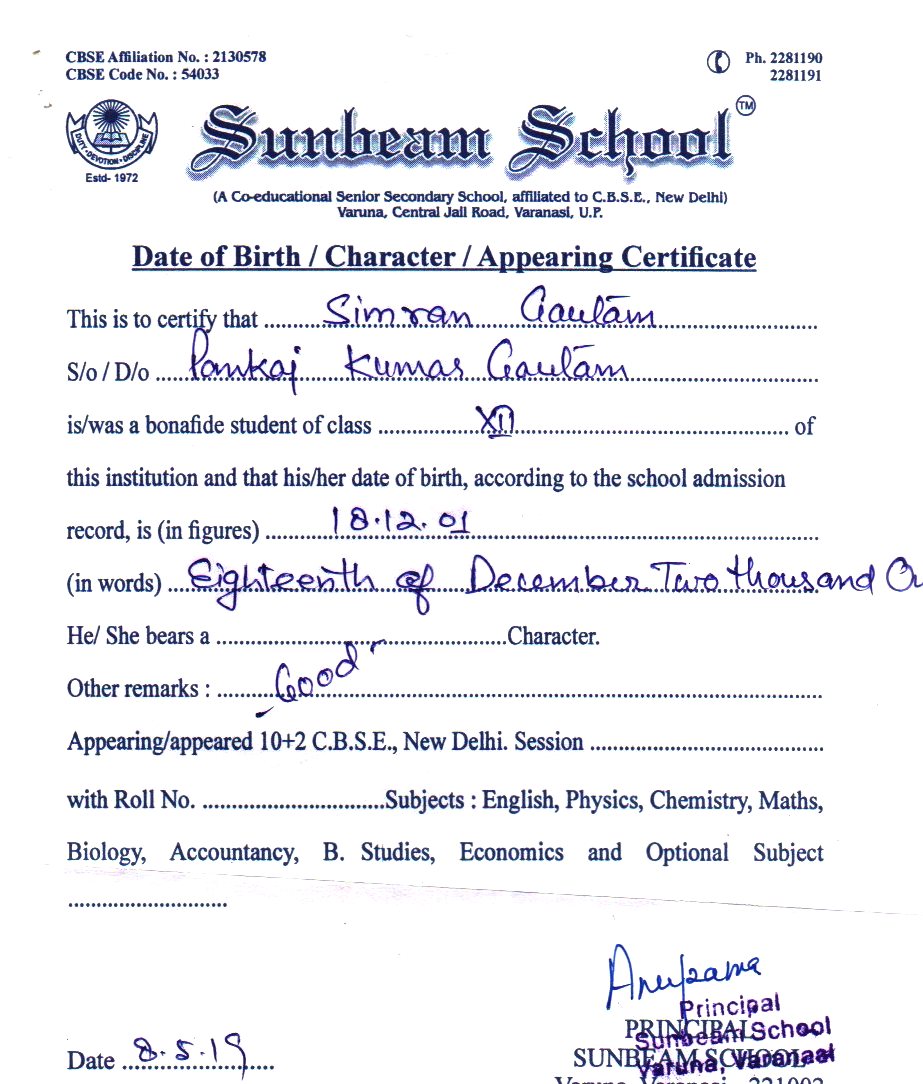 CBSE Affiliation No. : 2130578
CBSE Code No. : 54033
Ph. 2281190
2281191
DUTY • DEVOTION • DISCIPLINE
Estd- 1972
Sunbeam School TM
(A Co-educational Senior Secondary School, affiliated to C.B.S.E., New Delhi)
Varuna, Central Jail Road, Varanasi, U.P.
Date of Birth / Character / Appearing Certificate
This is to certify that Simran Gautam
S/o / D/o Pankaj Kumar Gautam
is/was a bonafide student of class XII of
this institution and that his/her date of birth, according to the school admission
record, is (in figures) 18.12.01
(in words) Eighteenth of December Two thousand On
He/ She bears a ..............................Character.
Other remarks : Good
Appearing/appeared 10+2 C.B.S.E., New Delhi. Session ..............................
with Roll No. ..............................Subjects : English, Physics, Chemistry, Maths,
Biology, Accountancy, B. Studies, Economics and Optional Subject
..............................
Anupama
Principal
PRINCIPAL
Sunbeam School
Date 8.5.19
SUNBEAM SCHOOL
Varuna, Varanasi
Varuna, Varanasi - 221002